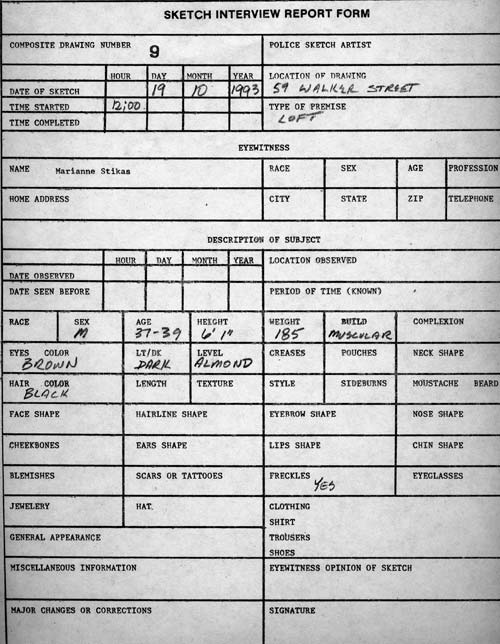 SKETCH INTERVIEW REPORT FORM
COMPOSITE DRAWING NUMBER 9 POLICE SKETCH ARTIST
HOUR DAY MONTH YEAR LOCATION OF DRAWING
DATE OF SKETCH 19 10 1993 59 WALKER STREET
TIME STARTED 12:00 TYPE OF PREMISE
TIME COMPLETED LOFT
EYEWITNESS
NAME Marianne Stikas RACE SEX AGE PROFESSION
HOME ADDRESS CITY STATE ZIP TELEPHONE
DESCRIPTION OF SUBJECT
HOUR DAY MONTH YEAR LOCATION OBSERVED
DATE OBSERVED
DATE SEEN BEFORE PERIOD OF TIME (KNOWN)
RACE SEX AGE HEIGHT WEIGHT BUILD COMPLEXION
M 37-39 6' 1" 185 MUSCULAR
EYES COLOR LT/DK LEVEL CREASES POUCHES NECK SHAPE
BROWN DARK ALMOND
HAIR COLOR LENGTH TEXTURE STYLE SIDEBURNS MOUSTACHE BEARD
BLACK
FACE SHAPE HAIRLINE SHAPE EYEBROW SHAPE NOSE SHAPE
CHEEKBONES EARS SHAPE LIPS SHAPE CHIN SHAPE
BLEMISHES SCARS OR TATTOOES FRECKLES EYEGLASSES
YES
JEWELERY HAT. CLOTHING
SHIRT
GENERAL APPEARANCE TROUSERS
SHOES
MISCELLANEOUS INFORMATION EYEWITNESS OPINION OF SKETCH
MAJOR CHANGES OR CORRECTIONS SIGNATURE